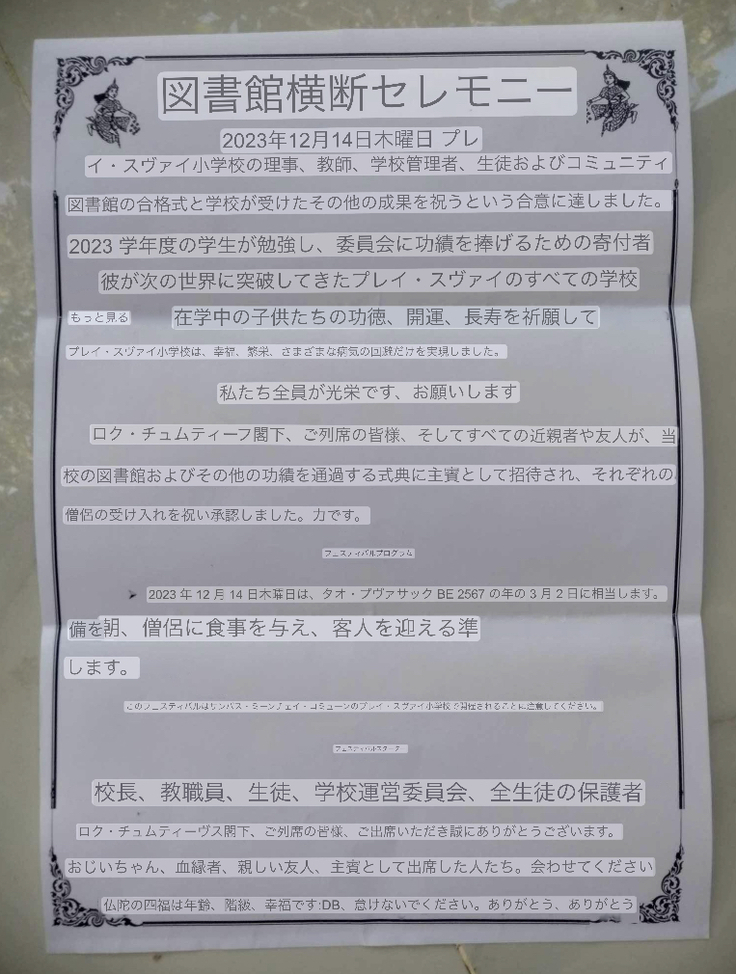 図書館横断セレモニー
2023年12月14日木曜日 プレ
イ・スヴァイ小学校の理事、教師、学校管理者、生徒およびコミュニティ
図書館の合格式と学校が受けたその他の成果を祝うという合意に達しました。
2023 学年度の学生が勉強し、委員会に功績を捧げるための寄付者
彼が次の世界に突破してきたプレイ・スヴァイのすべての学校
もっと見る 在学中の子供たちの功徳、開運、長寿を祈願して
プレイ・スヴァイ小学校は、幸福、繁栄、さまざまな病気の回避だけを実現しました。
私たち全員が光栄です、お願いします
ロク・チュムティーフ閣下、ご列席の皆様、そしてすべての近親者や友人が、当
校の図書館およびその他の功績を通過する式典に主賓として招待され、それぞれの
僧侶の受け入れを祝い承認しました。力です。
フェスティバルプログラム
➤ 2023 年 12 月 14 日木曜日は、タオ・プヴァサック BE 2567 の年の 3 月 2 日に相当します。
備を朝、僧侶に食事を与え、客人を迎える準
します。
このフェスティバルはサンバス・ミーンチェイ・コミューンのプレイ・スヴァイ小学校で開催されることに注意してください。
フェスティバルスター
校長、教職員、生徒、学校運営委員会、全生徒の保護者
ロク・チュムティーヴス閣下、ご列席の皆様、ご出席いただき誠にありがとうございます。
おじいちゃん、血縁者、親しい友人、主賓として出席した人たち。会わせてください
仏陀の四福は年齢、階級、幸福です:DB、怠けないでください。ありがとう、ありがとう